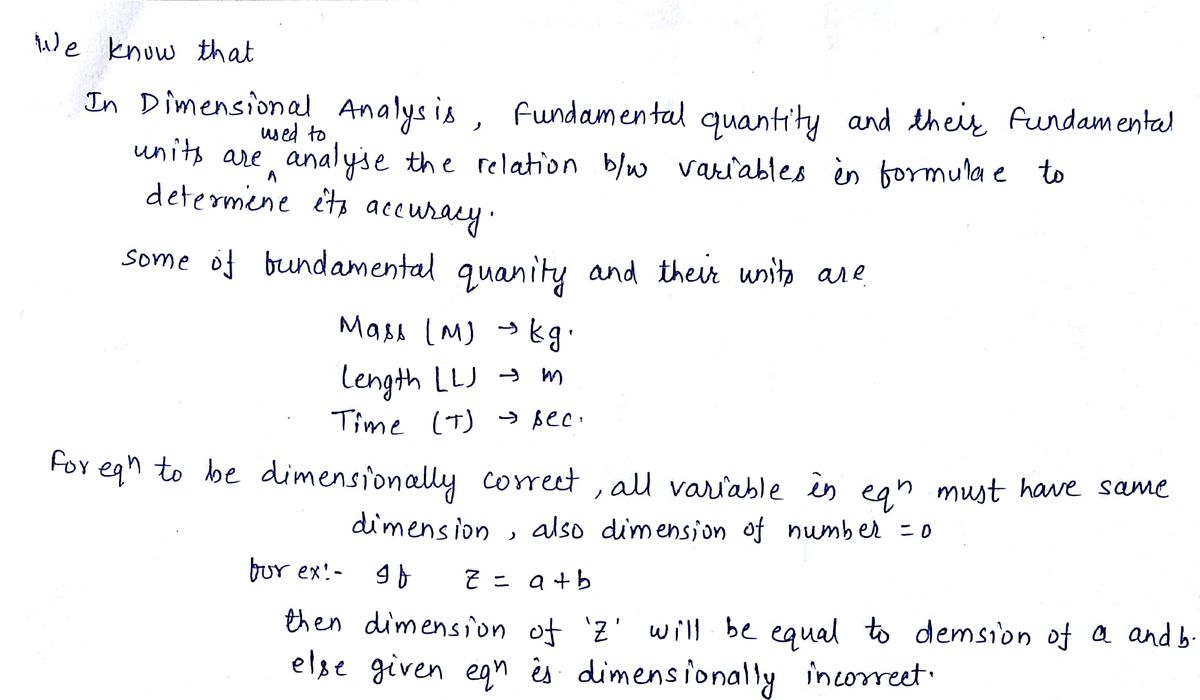 We know that
In Dimensional Analysis, fundamental quantity and their fundamental
used to
units are ^ analyse the relation b/w variables in formulae to
determine its accuracy.
Some of fundamental quanity and their units are
Mass [M] → kg.
Length [L] → m
Time (T) → sec.
for eqn to be dimensionally correct, all variable in eqn must have same
dimension, also dimension of number = 0
for ex:- If z = a+b
then dimension of 'z' will be equal to demsion of a and b.
else given eqn is dimensionally incorrect.